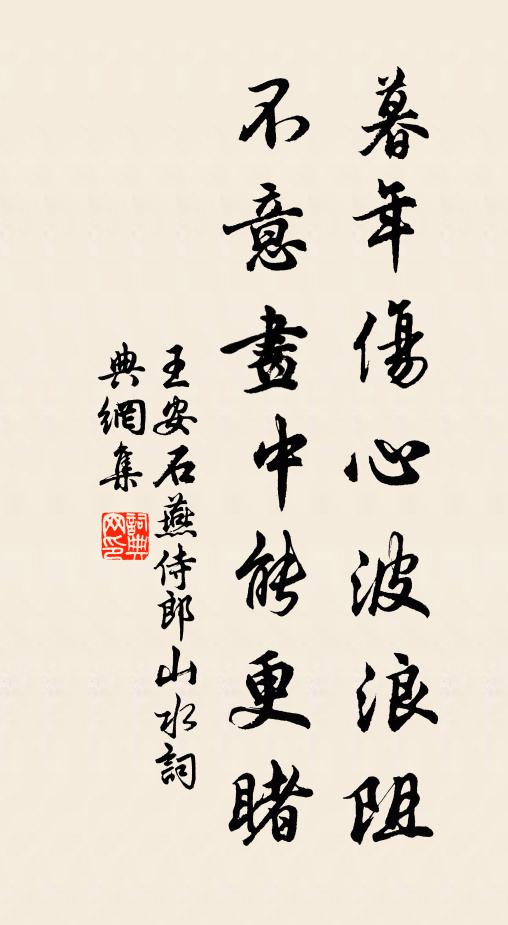 暮年傷心波浪阻
不意畫中能更睹
王安石燕侍郎山水詞
典網集
詞典網印